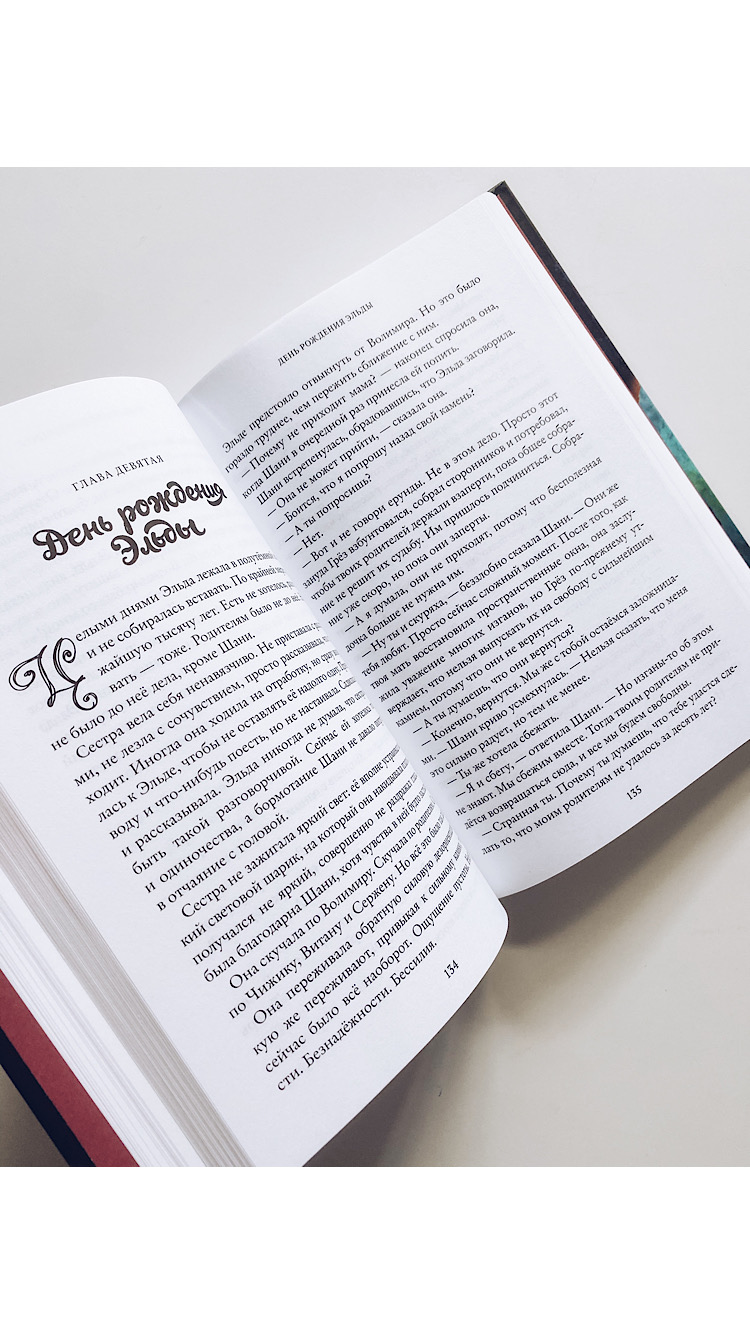 ГЛАВА ДЕВЯТАЯ
День рождения
Эльды
Целыми днями Эльда лежала в полутёмной
и не собиралась вставать. По крайней мере,
жайшую тысячу лет. Есть не хотелось,
вать — тоже. Родителям было не до неё,
не было до неё дела, кроме Шани.
Сестра вела себя ненавязчиво. Не приставала с
ми, не лезла с сочувствием, просто рассказывала,
ходит. Иногда она ходила на отработку, но
лась к Эльде, чтобы не оставлять её надолго одну.
воду и что-нибудь поесть, но не настаивала.
и рассказывала. Эльда никогда не думала, что
быть такой разговорчивой. Сейчас ей
и одиночества, а бормотание Шани не давало
в отчаяние с головой.
Сестра не зажигала яркий свет: её вполне
кий световой шарик, на который она накидывала
получался не яркий, совершенно не
была благодарна Шани, хотя чувства в ней
Она скучала по Волимиру. Скучала по
по Чижику, Витану и Сержену. Но всё это было
Она переживала обратную силовую
кую же переживают, привыкая к сильному
сейчас было всё наоборот. Ощущение пустоты.
сти. Безнадёжности. Бессилия.
134
ДЕНЬ РОЖДЕНИЯ ЭЛЬДЫ
Эльде предстояло отвыкнуть от Волимира. Но это было
гораздо труднее, чем пережить сближение с ним.
— Почему не приходит мама? — наконец спросила она,
когда Шани в очередной раз принесла ей попить.
Шани встрепенулась, обрадовавшись, что Эльда заговорила.
— Она не может прийти, — сказала она.
— Боится, что я попрошу назад свой камень?
— А ты попросишь?
— Нет.
— Вот и не говори ерунды. Не в этом дело. Просто этот
зануда Грёз взбунтовался, собрал сторонников и потребовал,
чтобы твоих родителей держали взаперти, пока общее собра-
ние не решит их судьбу. Им пришлось подчиниться. Собра-
ние уже скоро, но пока они заперты.
— А я думала, они не приходят, потому что бесполезная
дочка больше не нужна им.
— Ну ты и скуряха, — беззлобно сказала Шани. — Они же
тебя любят. Просто сейчас сложный момент. После того, как
твоя мать восстановила пространственные окна, она заслу-
жила уважение многих изганов, но Грёз по-прежнему ут-
верждает, что нельзя выпускать их на свободу с сильнейшим
камнем, потому что они не вернутся.
— А ты думаешь, что они вернутся?
— Конечно, вернутся. Мы же с тобой остаёмся заложница-
ми. — Шани криво усмехнулась. — Нельзя сказать, что меня
это сильно радует, но тем не менее.
— Ты же хотела сбежать.
— Я и сбегу, — ответила Шани. — Но изганы-то об этом
не знают. Мы сбежим вместе. Тогда твоим родителям не при-
дётся возвращаться сюда, и все мы будем свободны.
— Странная ты. Почему ты думаешь, что тебе удастся сде-
лать то, что моим родителям не удалось за десять лет?
135